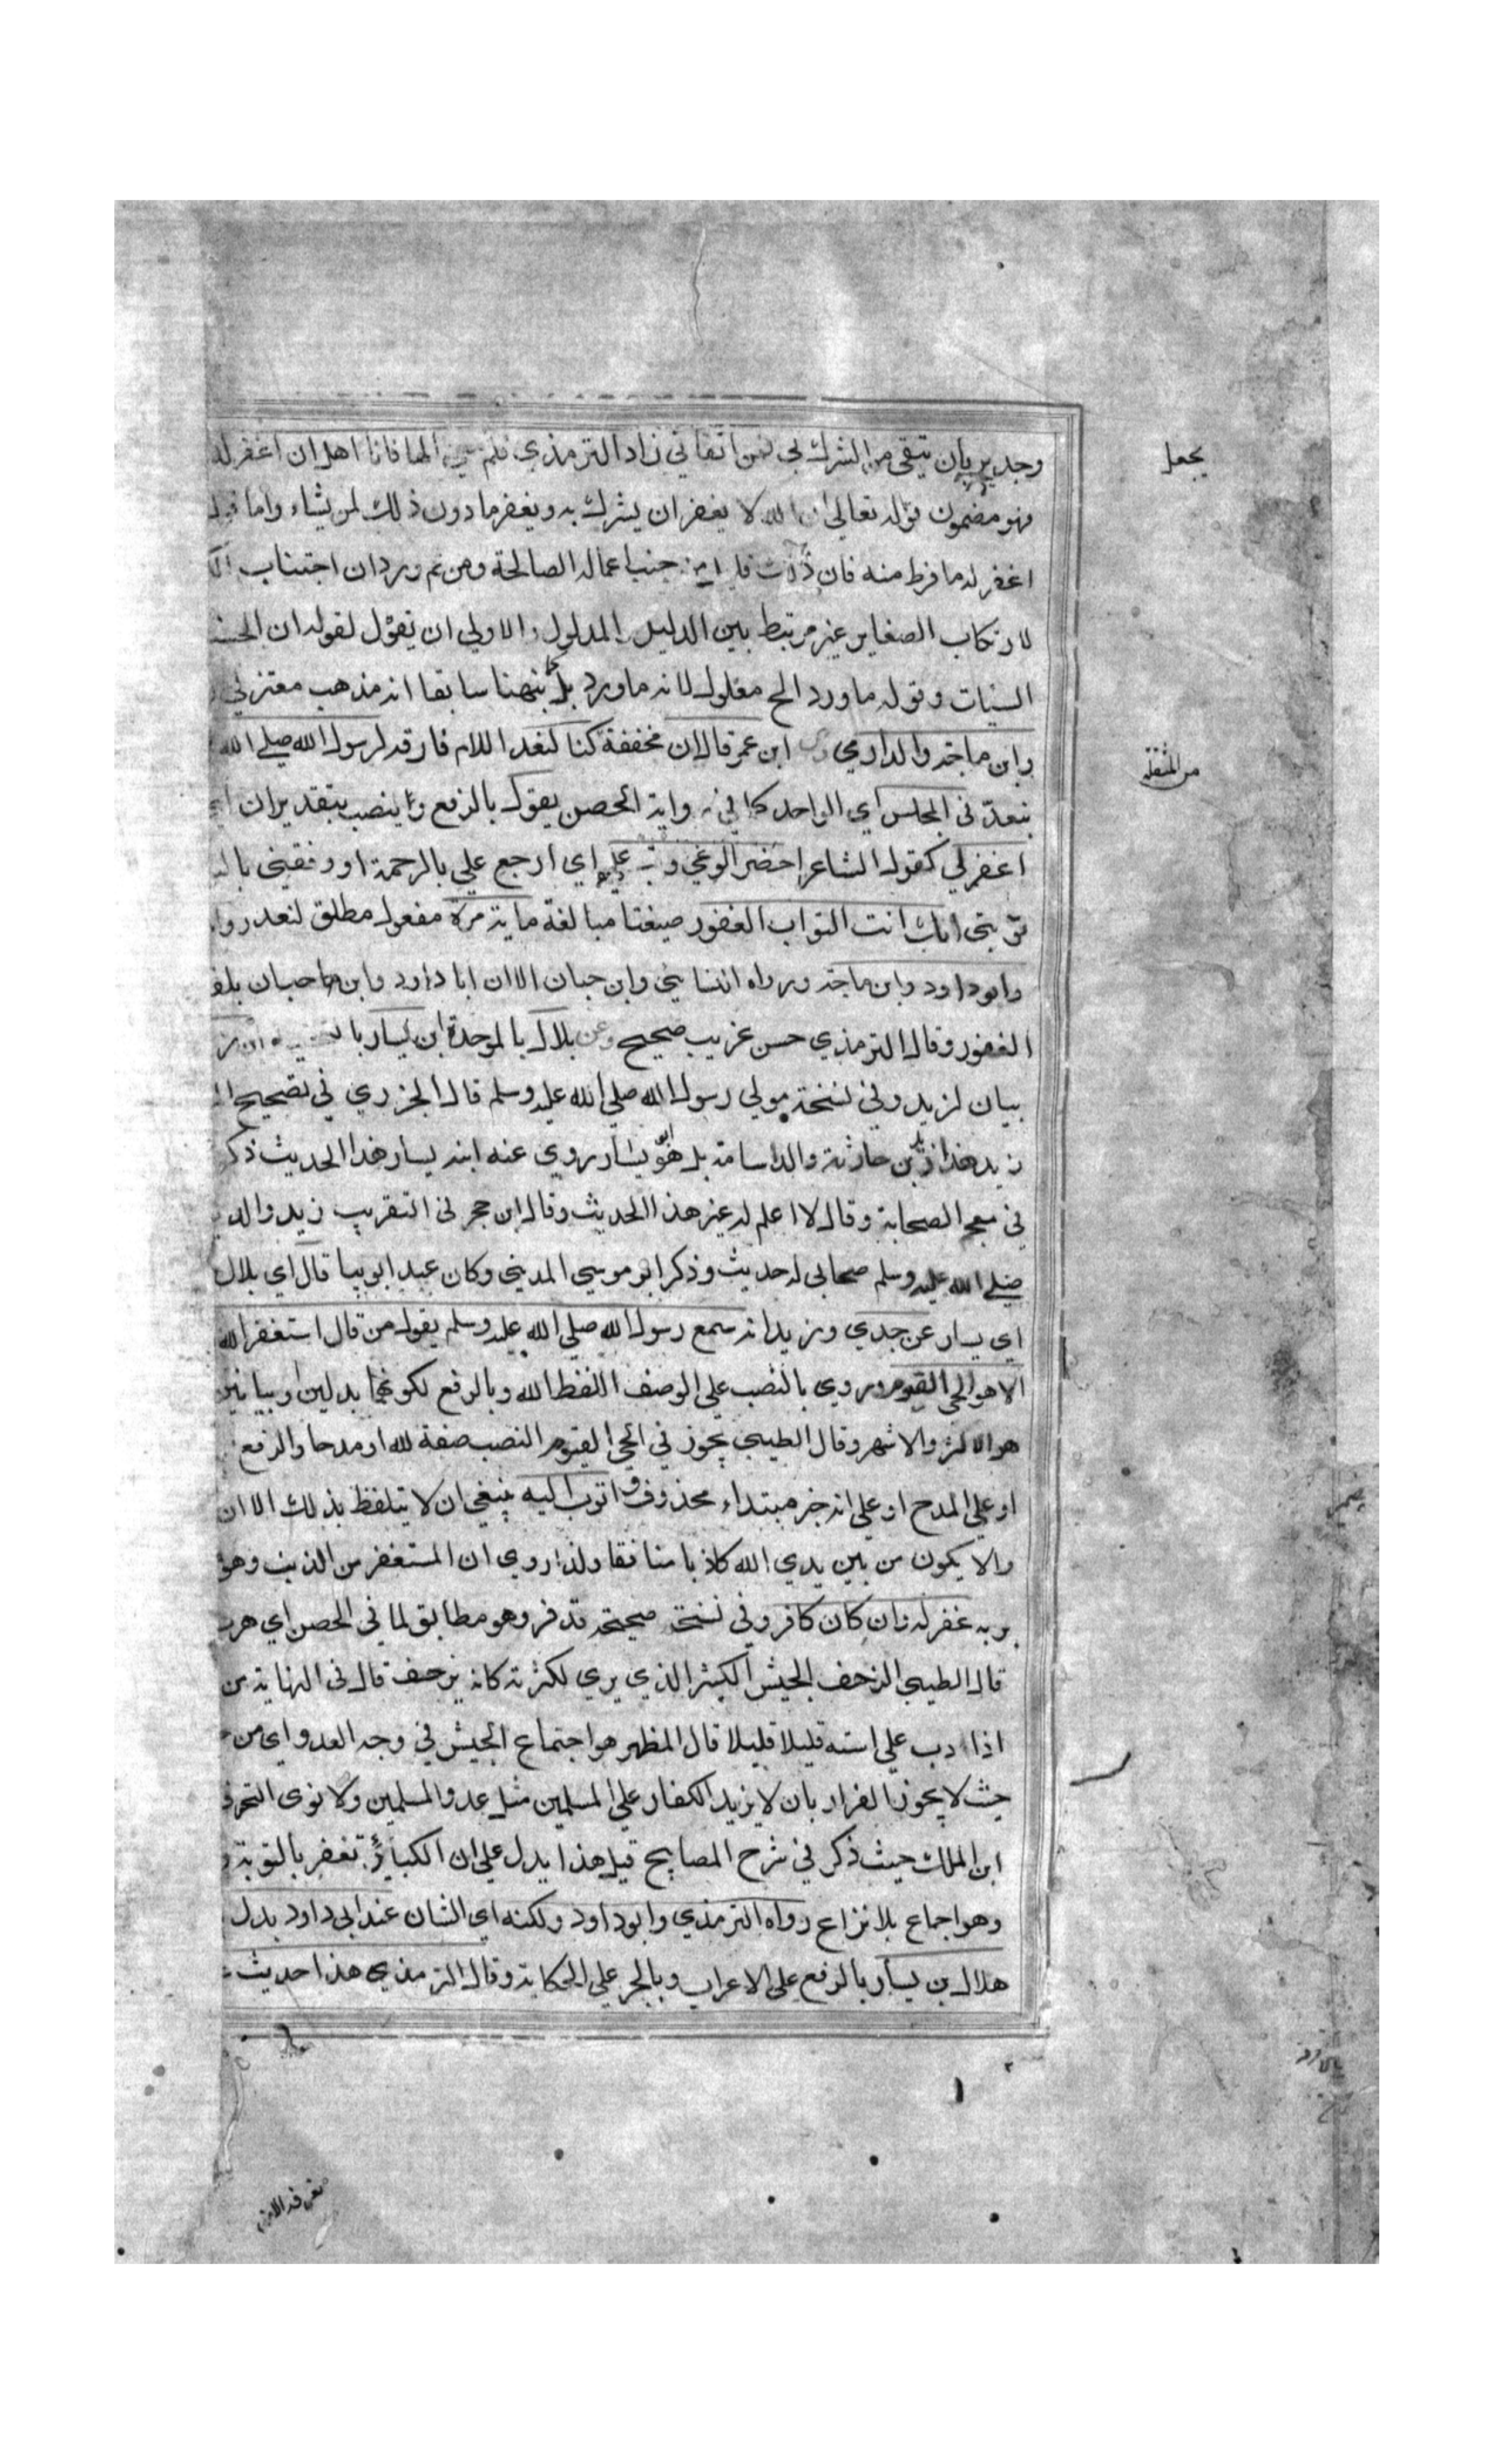 وجدير بان يتقى من الشرك بي فمن اتقاني زاد الترمذي فلم الها فانا اهل ان اغفر له
فهو مضمون قوله تعالى ان الله لا يغفر ان يشرك به ويغفر ما دون ذلك لمن يشاء واما قوله
اغفر له ما فرط منه فان جنب اعماله الصالحة ومن ثم ورد ان اجتناب
لارتكاب الصغاير غير مرتبط بين الدليل والمدلول والاولى ان يقول لقوله ان الحسنا
السيئات وقوله ما ورد الح معلول لانه ما ورد بل كما بنهنا سابقا انه مذهب معتزلي
وابن ماجة والدارمي وعن ابن عمر قال ان مخففة كنا لنعد اللام فارقه لرسول الله صلى الله
نبعد في المجلس اي الواحد كما في رواية الحصن يقول بالرفع وينصب بتقدير ان اي
اغفرلي كقول الشاعر احضر الوغي وتب علي اي ارجع علي بالرحمة او وفقني بال
توبتي انك انت التواب الغفور صيغتا مبالغة ماية مرة مفعول مطلق لنعد روا
وابو داود وابن ماجة ورواه النسائي وابن حبان الا ان ابا داود وابن حبان بلف
الغفور وقال الترمذي حسن غريب صحيح وعن بلال بالموحدة ابن يسار بالتحتية ابن ز
بيان لزيد وفي نسخة مولى رسول الله صلى الله عليه وسلم قال الجزري في تصحيح ال
زيد هذا زيد بن حارثة والد اسامة بل هو ابو يسار روي عنه ابنه يسار هذا الحديث ذكر
في معجم الصحابة وقال لا اعلم له غير هذا الحديث وقال ابن حجر في التقريب زيد والد
صلى الله عليه وسلم صحابي له حديث وذكر ابو موسى المديني وكان عبدا نوبيا قال اي بلال
اي يسار عن جدي وزيد انه سمع رسول الله صلى الله عليه وسلم يقول من قال استغفر الله
الا هو الحي القيوم وروي بالنصب على الوصف اللفظ الله وبالرفع لكونهما بدلين او بيانين
هو الاكثر والاشهر وقال الطيبي يجوز في الحي القيوم النصب صفة لله او مدحا والرفع
او على المدح او على انه خبر مبتداء محذوف واتوب اليه ينبغي ان لا يتلفظ بذلك الا ان
والا يكون من بين يدي الله كاذبا منافقا ولذا روي ان المستغفر من الذنب وهو
بربه غفر له وان كان كافر وفي نسخة صحيحة قد فر وهو مطابق لما في الحصن اي هرب
قال الطيبي الزحف الجيش الكثير الذي يري لكثرته كانه يزحف قال في النهاية من
اذا دب على استه قليلا قليلا قال المظهر هو اجتماع الجيش في وجه العدو اي من
حيث لا يجوز الفرار بان لا يزيد الكفار على المسلمين مثل عدو المسلمين ولا نوى التحر
ابن الملك حيث ذكر في شرح المصابيح قيل هذا يدل على ان الكبائر تغفر بالتوبة
وهو اجماع بلا نزاع رواه الترمذي وابو داود ولكنه اي الشان عند ابي داود بدل
هلال بن يسار بالرفع على الاعراب وبالجر على الحكاية وقال الترمذي هذا حديث
يجعل
من المثقلة